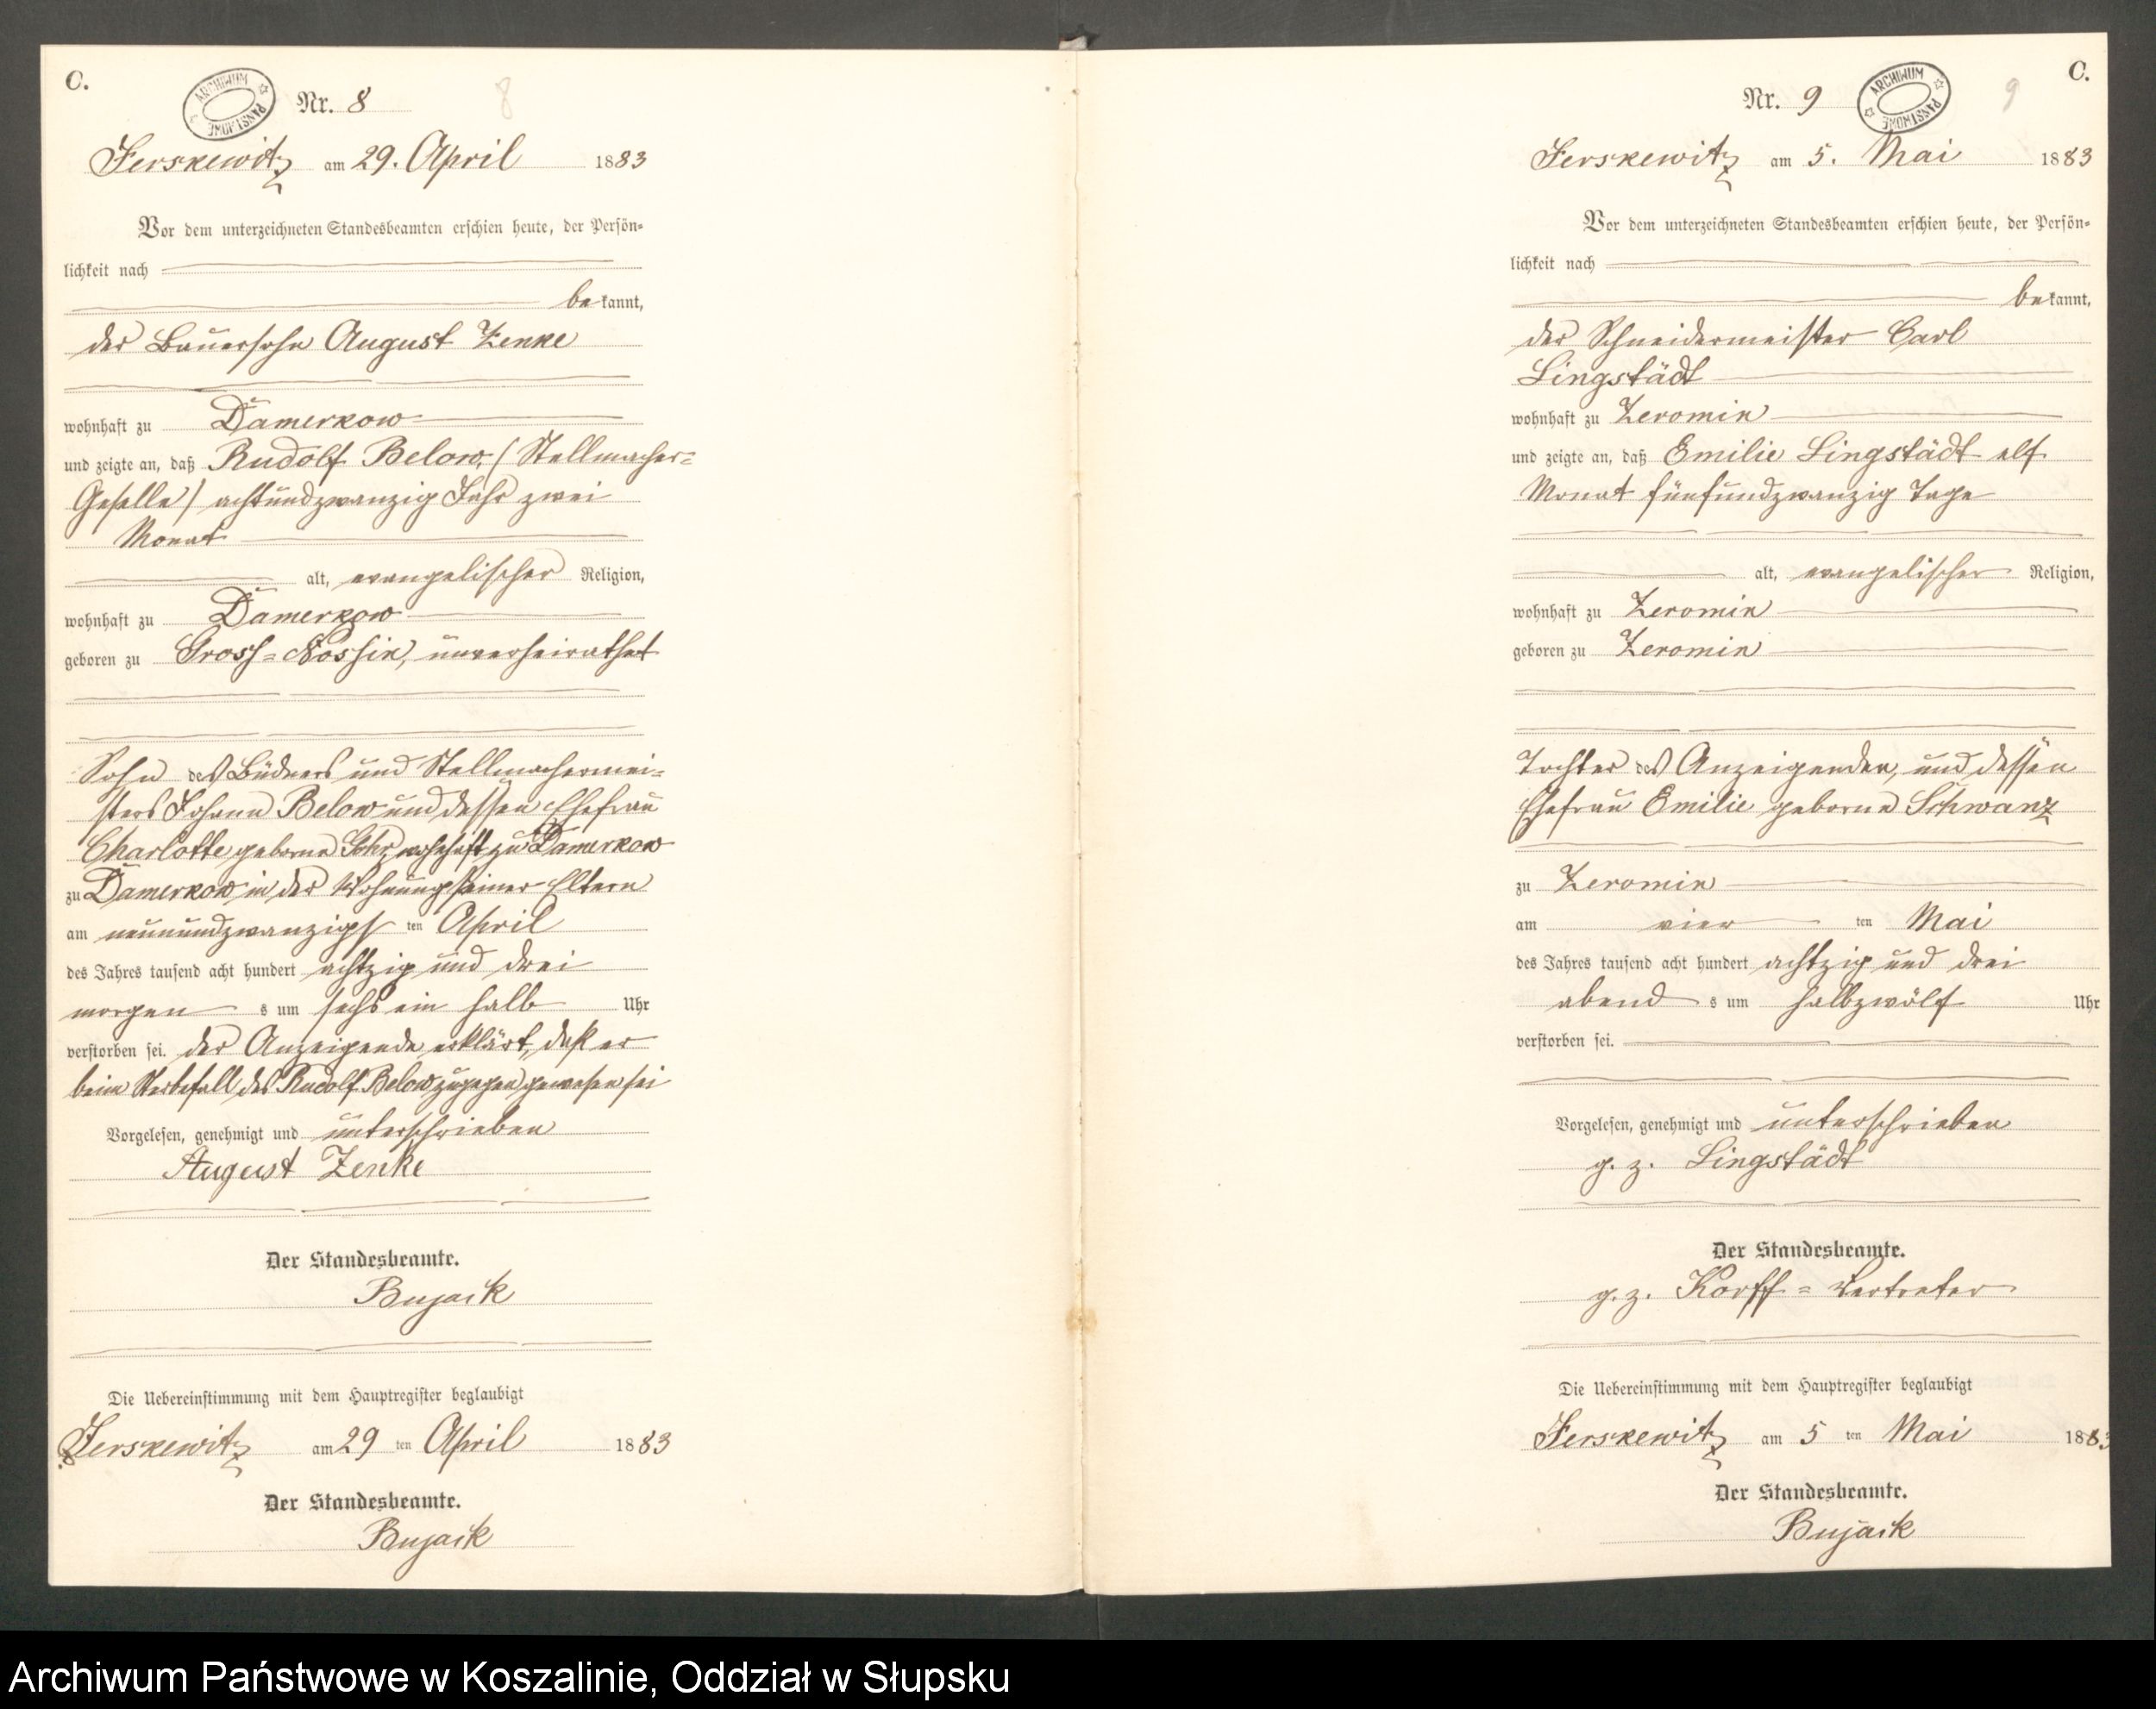 C.
ARCHIWUM PAŃSTWOWE
Nr. 8
8
Jerskewitz am 29. April 1883
Vor dem unterzeichneten Standesbeamten erschien heute, der Persön-
lichkeit nach
bekannt,
der Bauersohn August Zenke
wohnhaft zu Damerkow
und zeigte an, daß Rudolf Below, (Stellmacher-
Geselle) achtundzwanzig Jahr zwei
Monat
alt, evangelischer Religion,
wohnhaft zu Damerkow
geboren zu Gross-Nossin, unverheirathet
Sohn des Büdners und Stellmachermei-
sters Johann Below und dessen Ehefrau
Charlotte geborne wohnhaft zu Damerkow
zu Damerkow in der Wohnung seiner Eltern
am neunundzwanzigsten April
des Jahres tausend acht hundert achtzig und drei
morgens um sechs ein halb Uhr
verstorben sei. der Anzeigende erklärt, daß er
beim Sterbefall des Rudolf Below zugegen gewesen sei
Vorgelesen, genehmigt und unterschrieben
August Zenke
Der Standesbeamte.
Bujack
Die Uebereinstimmung mit dem Hauptregister beglaubigt
Jerskewitz am 29 ten April 1883
Der Standesbeamte.
Bujack
C.
Nr. 9
ARCHIWUM PAŃSTWOWE
9
Jerskewitz am 5. Mai 1883
Vor dem unterzeichneten Standesbeamten erschien heute, der Persön-
lichkeit nach
bekannt,
der Schneidermeister Carl
Lingstädt
wohnhaft zu Zeromin
und zeigte an, daß Emilie Lingstädt elf
Monat fünfundzwanzig Tage
alt, evangelischer Religion,
wohnhaft zu Zeromin
geboren zu Zeromin
Tochter des Anzeigenden, und dessen
Ehefrau Emilie geborne Schwanz
zu Zeromin
am vierten Mai
des Jahres tausend acht hundert achtzig und drei
abends um halbzwölf Uhr
verstorben sei.
Vorgelesen, genehmigt und unterschrieben
g. z. Lingstädt
Der Standesbeamte.
g. z. Korff = Vertreter
Die Uebereinstimmung mit dem Hauptregister beglaubigt
Jerskewitz am 5 ten Mai 1883
Der Standesbeamte.
Bujack
Archiwum Państwowe w Koszalinie, Oddział w Słupsku